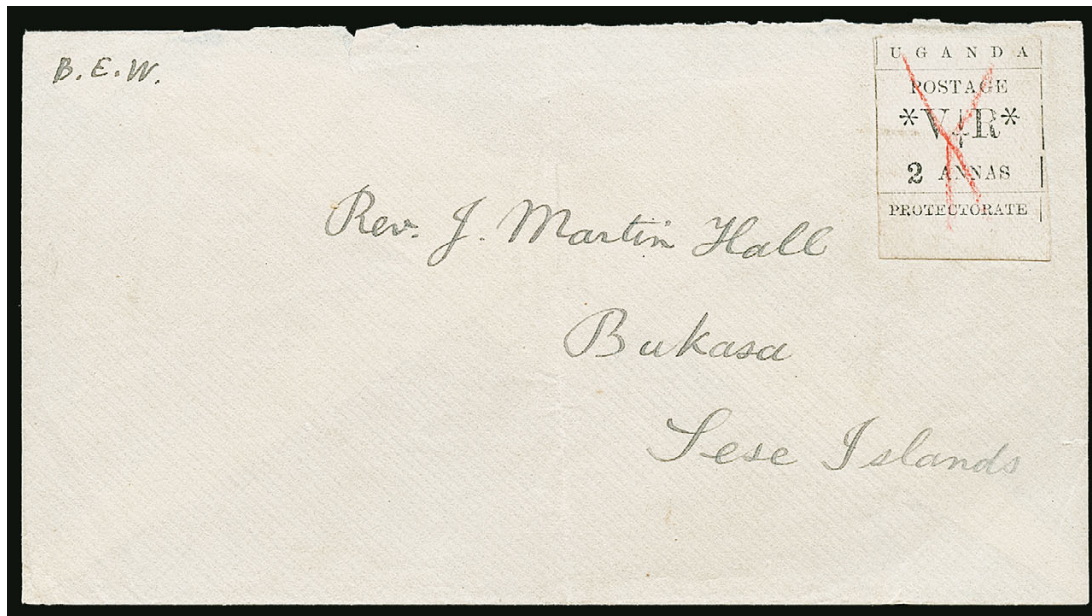 B.E.W.
UGANDA
POSTAGE
*V R*
2 ANNAS
PROTECTORATE
Rev. J. Martin Hall
Bukasa
Sese Islands